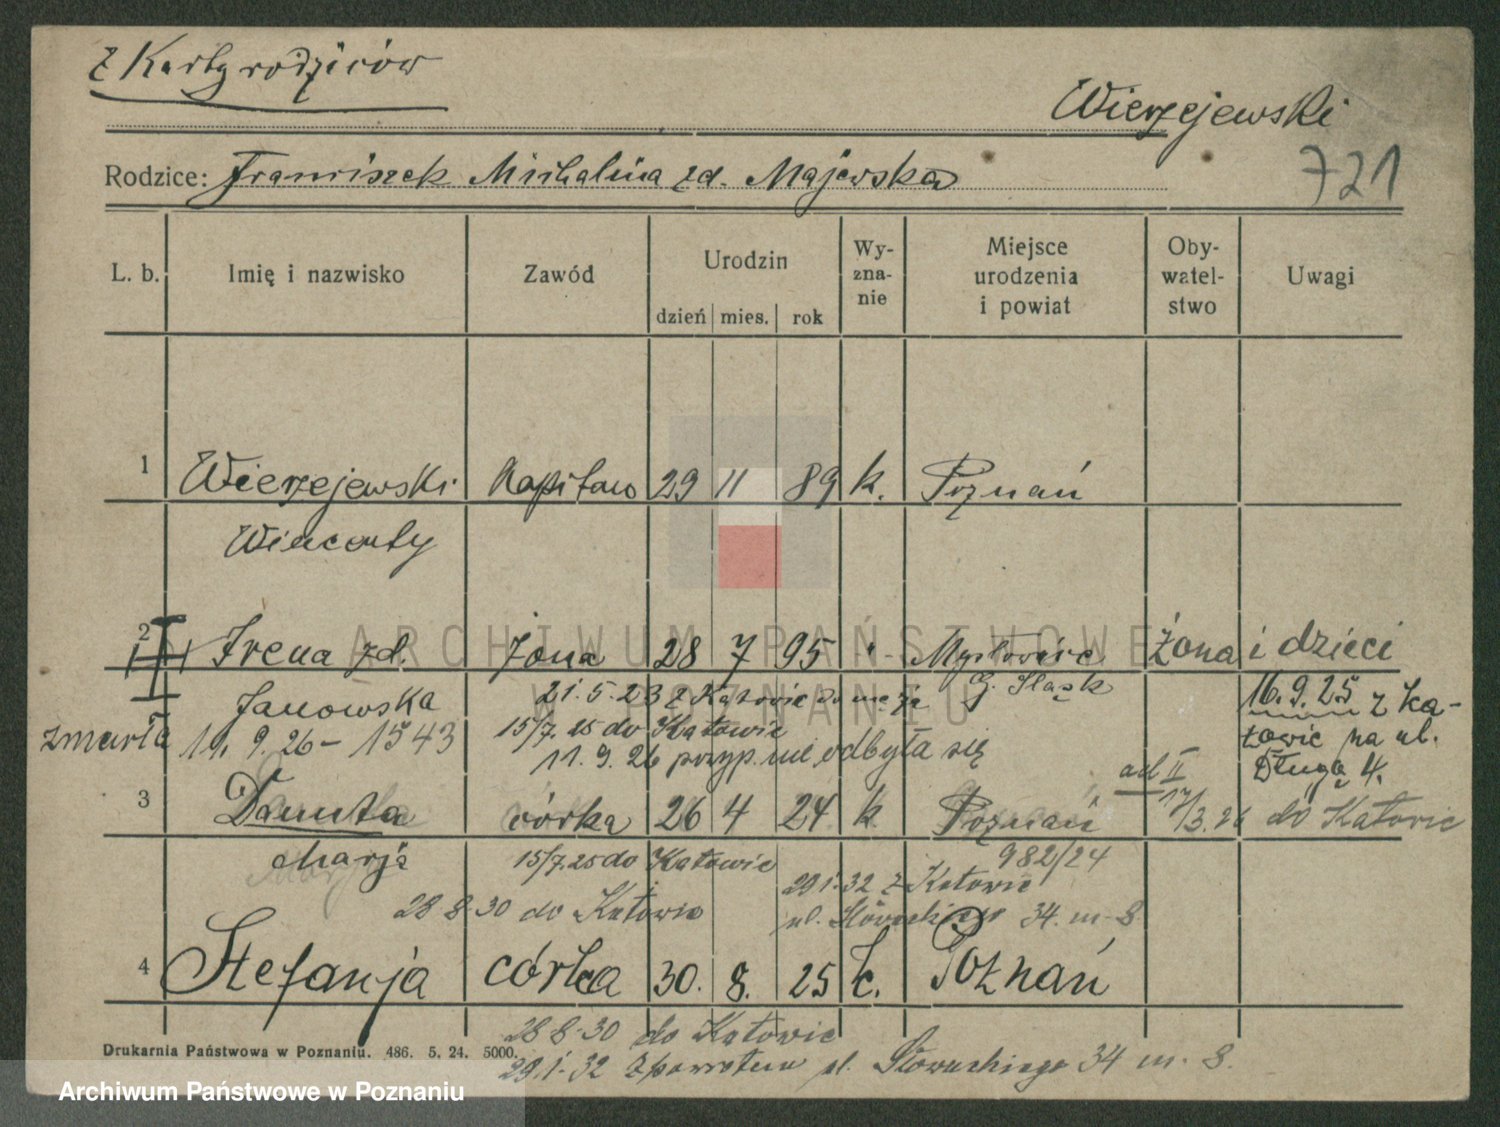 z Karty rodziców
Wierzejewski
Rodzice: Franciszek Michalina zd. Majewska
721
L. b. Imię i nazwisko Zawód Urodzin dzień mies. rok Wy-zna-nie Miejsce urodzenia i powiat Oby-watel-stwo Uwagi
1 Wierzejewski Kapitan 29 11 89 k. Poznań
Wincenty
2 Irena zd. żona 28 7 95 Mysłowice żona i dzieci
Janowska 21.5.23 z Katowic do męża G. Śląsk 16.9.25 z Ka-
zmarła 11. 9. 26 - 1543 15/7. 25 do Katowic towic na ul.
11. 9. 26 przyp. nie odbyła się ad II Długą 4.
3 Danuta córka 26 4 24 k Poznań 17/3. 26 do Katowic
Marja 15/7. 25 do Katowic 982/24
29.1.32 z Katowic
28 8.30 do Katowic ul. Słowackiego 34. m. 8
4 Stefanja córka 30. 8. 25 k. Poznań
28 8.30 do Katowic
Drukarnia Państwowa w Poznaniu. 486. 5. 24. 5000.
29.1.32 z powrotem ul. Słowackiego 34 m. 8.
ARCHIWUM PAŃSTWOWE
W POZNANIU
Archiwum Państwowe w Poznaniu